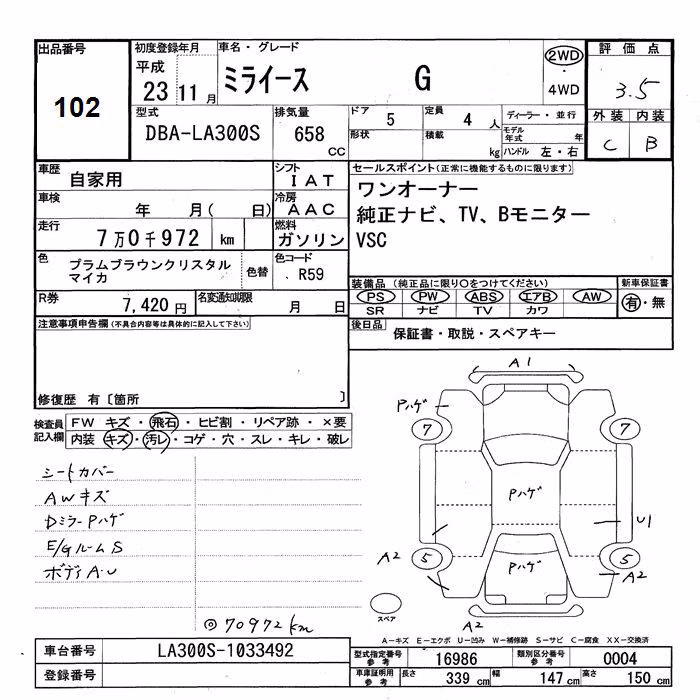 出品番号
102
初度登録年月
平成
23 11 月
車名・グレード
ミライース G
2WD
・
4WD
評価点
3.5
外装 内装
C B
型式
DBA-LA300S
排気量
658
CC
ドア 5
形状
定員 4 人
積載 kg
ディーラー・並行
モデル年式 年
ハンドル 左・右
車歴
自家用
シフト
IAT
車検
年 月( 日)
冷房
AAC
走行
7万0千972 km
燃料
ガソリン
色
プラムブラウンクリスタル
マイカ
色替
色コード
R59
R券
7,420 円
名変通知期限
月 日
セールスポイント(正常に機能するものに限ります)
ワンオーナー
純正ナビ、TV、Bモニター
VSC
装備品 (純正品に限り〇をつけてください)
PS PW ABS エアB AW
SR ナビ TV カワ
新車保証書
有・無
後日品
保証書・取説・スペアキー
注意事項申告欄(不具合内容等は具体的に記入して下さい)
修復歴 有〔箇所 〕
検査員
記入欄
FW キズ・飛石・ヒビ割・リペア跡・×要
内装・キズ・汚レ・コゲ・穴・スレ・キレ・破レ
シートカバー
AWキズ
DミラーPハゲ
E/GルームS
ボディA・U
◎70972km
A1
Pハゲ
7
7
Pハゲ
U1
A2
5
5
Pハゲ
A2
スペア
A2
A-キズ E-エクボ U-凹み W-補修跡 S-サビ C-腐食 XX-交換済
車台番号
LA300S-1033492
登録番号
型式指定番号
参考
16986
類別区分番号
参考
0004
車庫証明用
参考
長さ 339 cm
幅 147 cm
高さ 150 cm